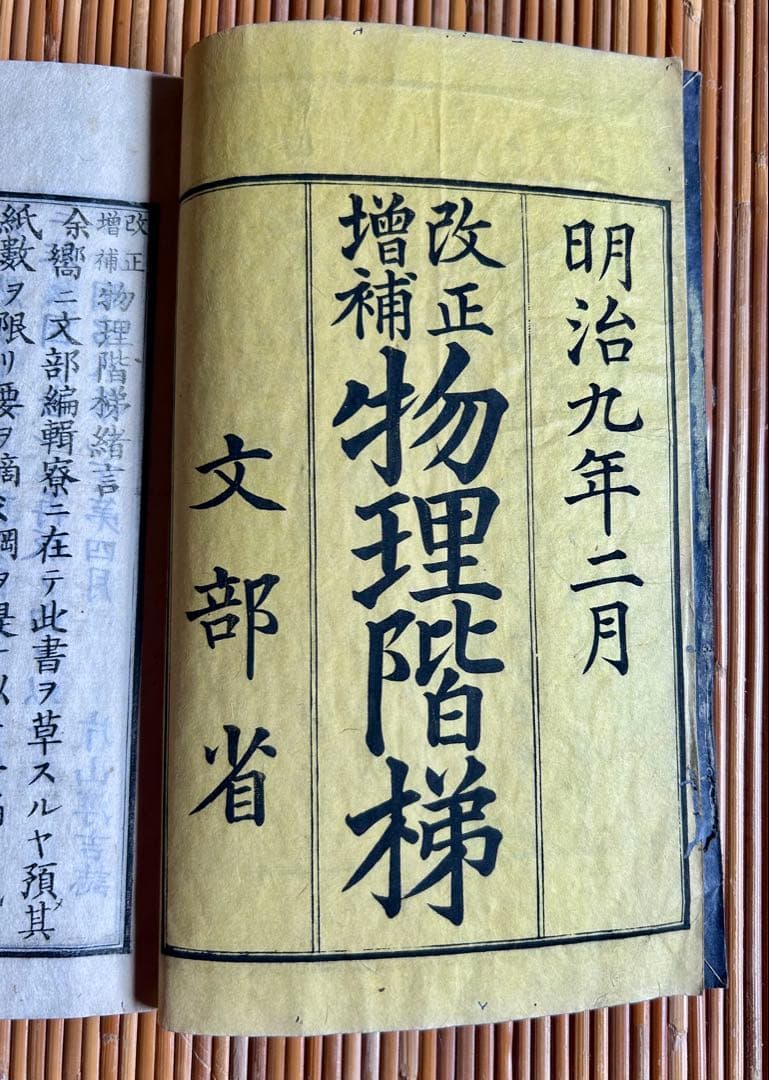 明治九年二月
改正
增補
物理階梯
文部省
改正
增補
物理階梯緒言
余嚮ニ文部編輯寮ニ在テ此書ヲ草スルヤ預メ其
紙數ヲ限リ要ヲ摘
綱ヲ